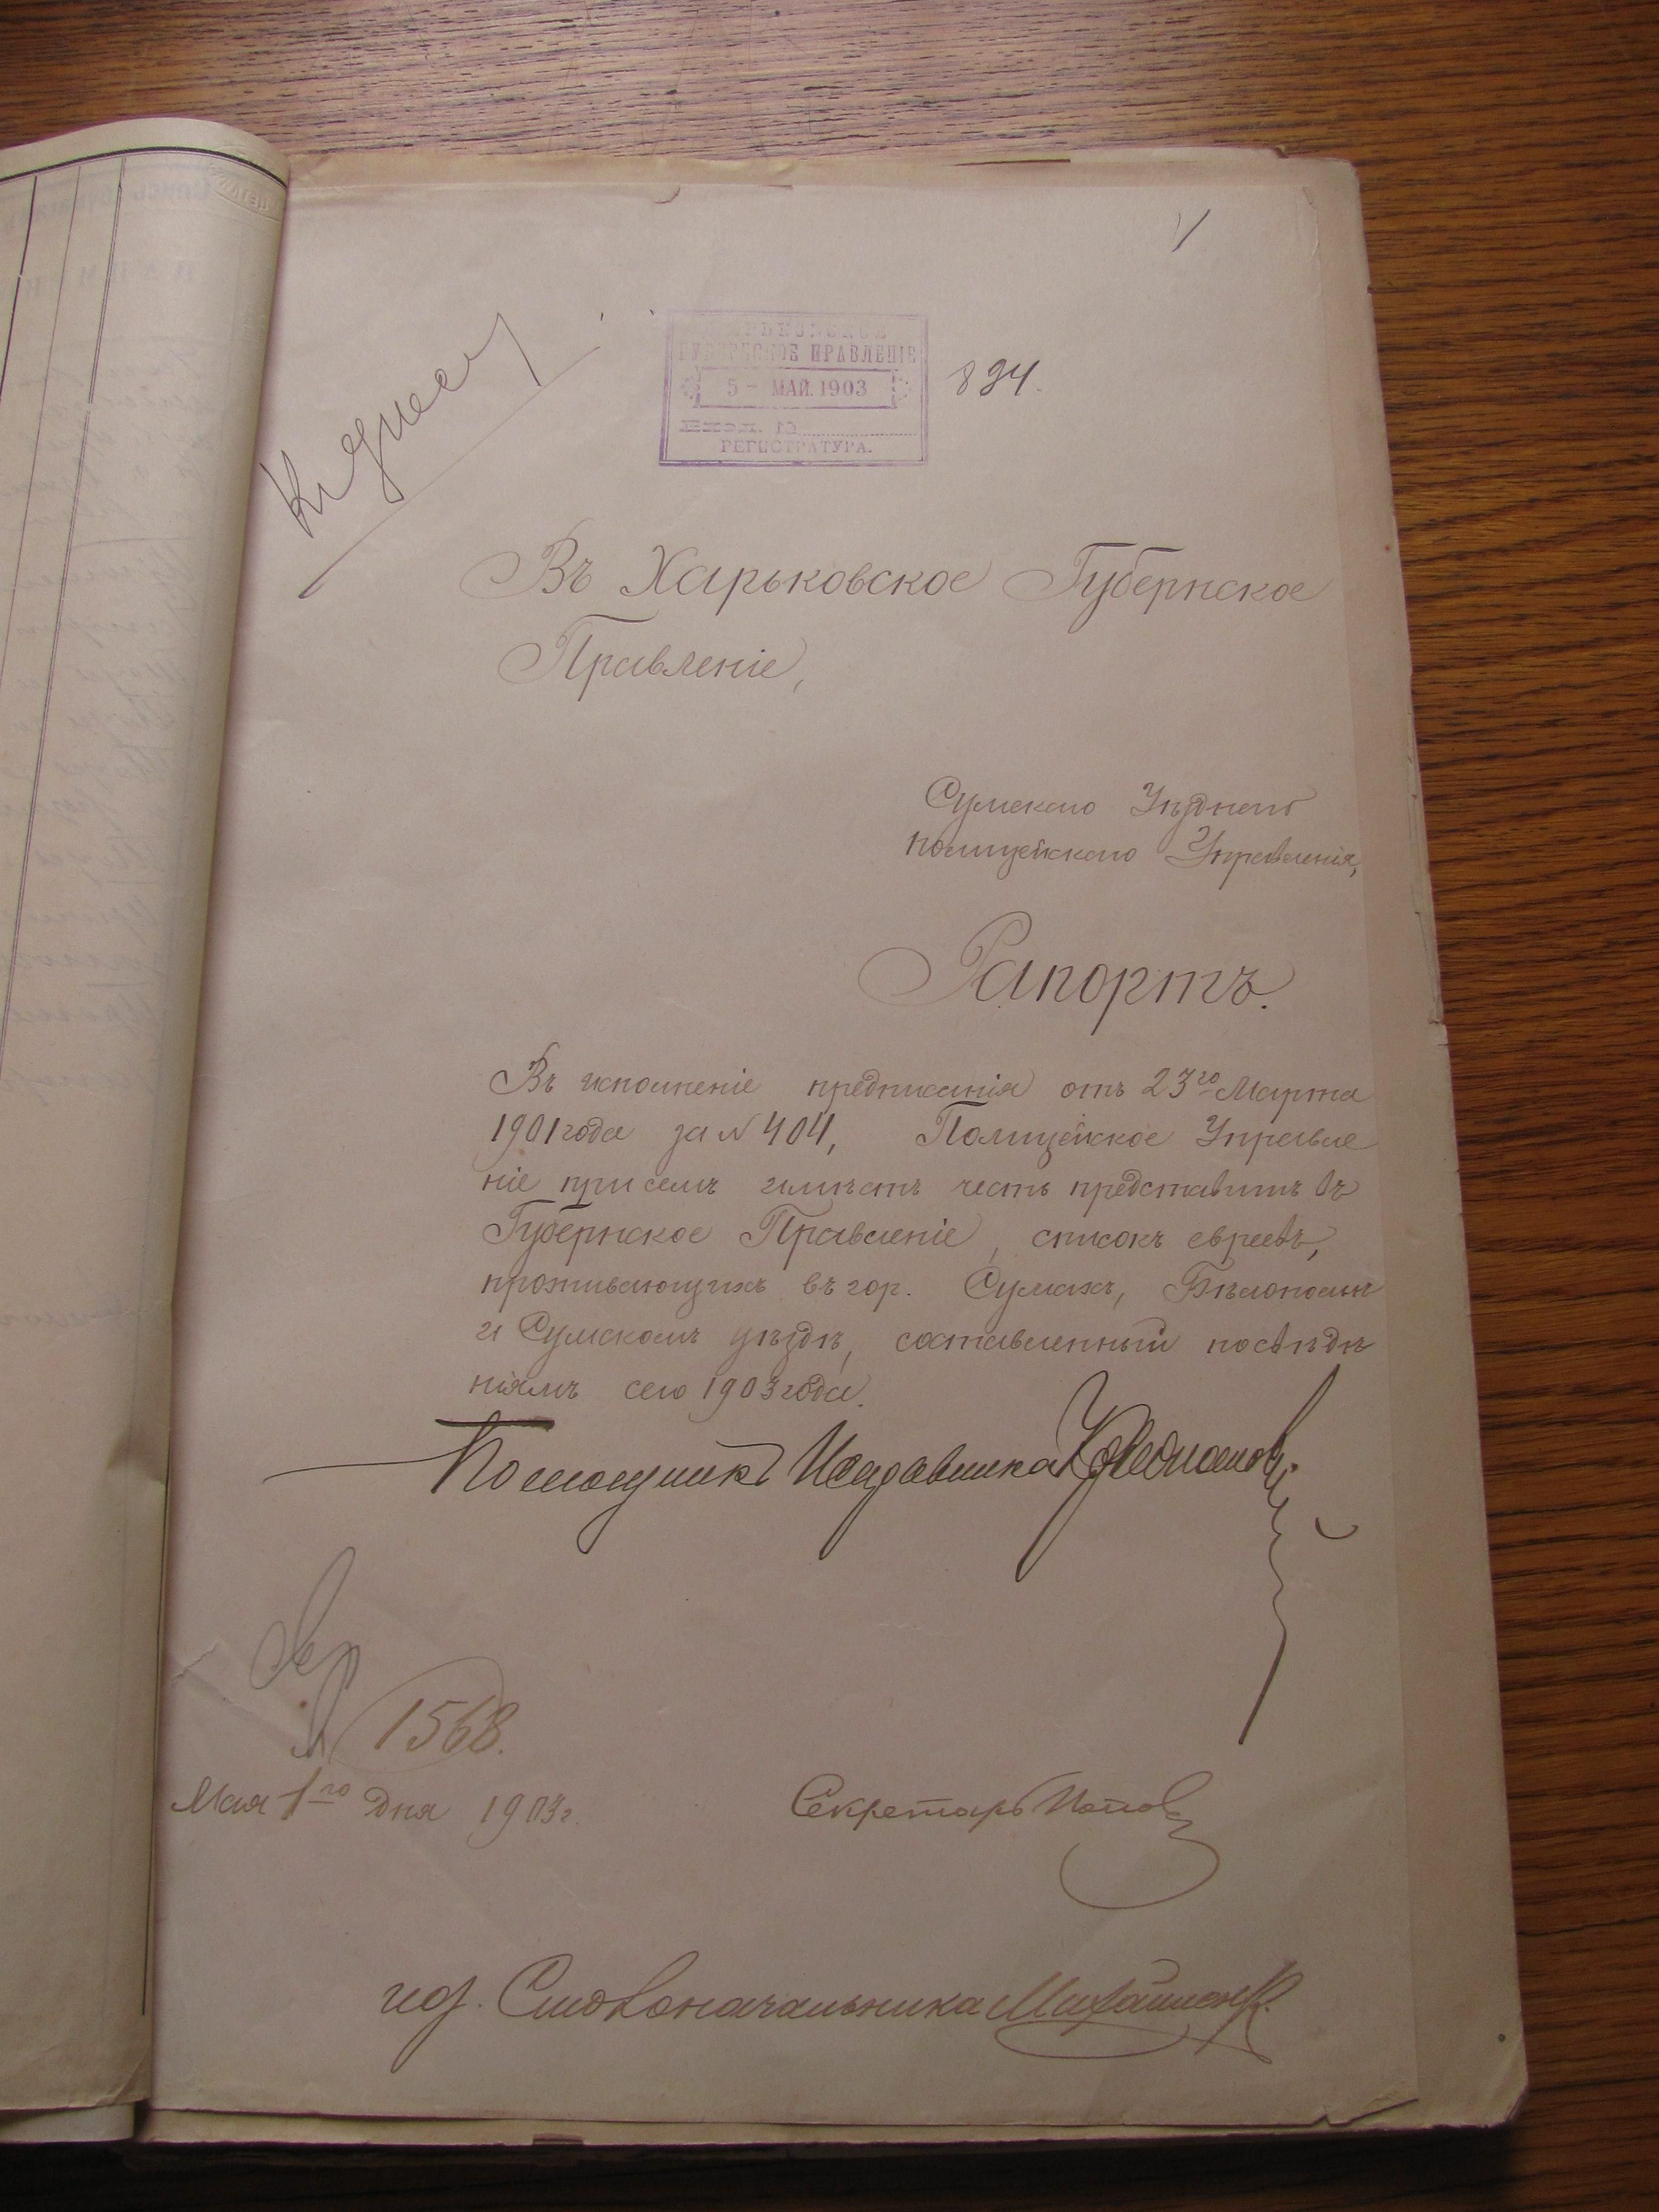 1
Къ дѣлу
ХАРЬКОВСКОЕ
ГУБЕРНСКОЕ ПРАВЛЕНІЕ
5 - МАЙ. 1903
РЕГИСТРАТУРА.
894.
Въ Харьковское Губернское
Правленіе,
Сумскаго Уѣзднаго
полицейскаго Управленія,
Рапортъ.
Въ исполненіе предписанія отъ 23го Марта
1901 года за № 404, Полицейское Управле
ніе при семъ имѣетъ честь представить въ
Губернское Правленіе, списокъ евреевъ,
проживающихъ въ гор. Сумахъ, Бѣлопольи
и Сумскомъ уѣздѣ, составленный по свѣдѣ
ніямъ сего 1903 года.
Помощникъ Исправника
1568.
Мая 1го дня 1903 г.
Секретарь Поповъ
иод. Столоначальника